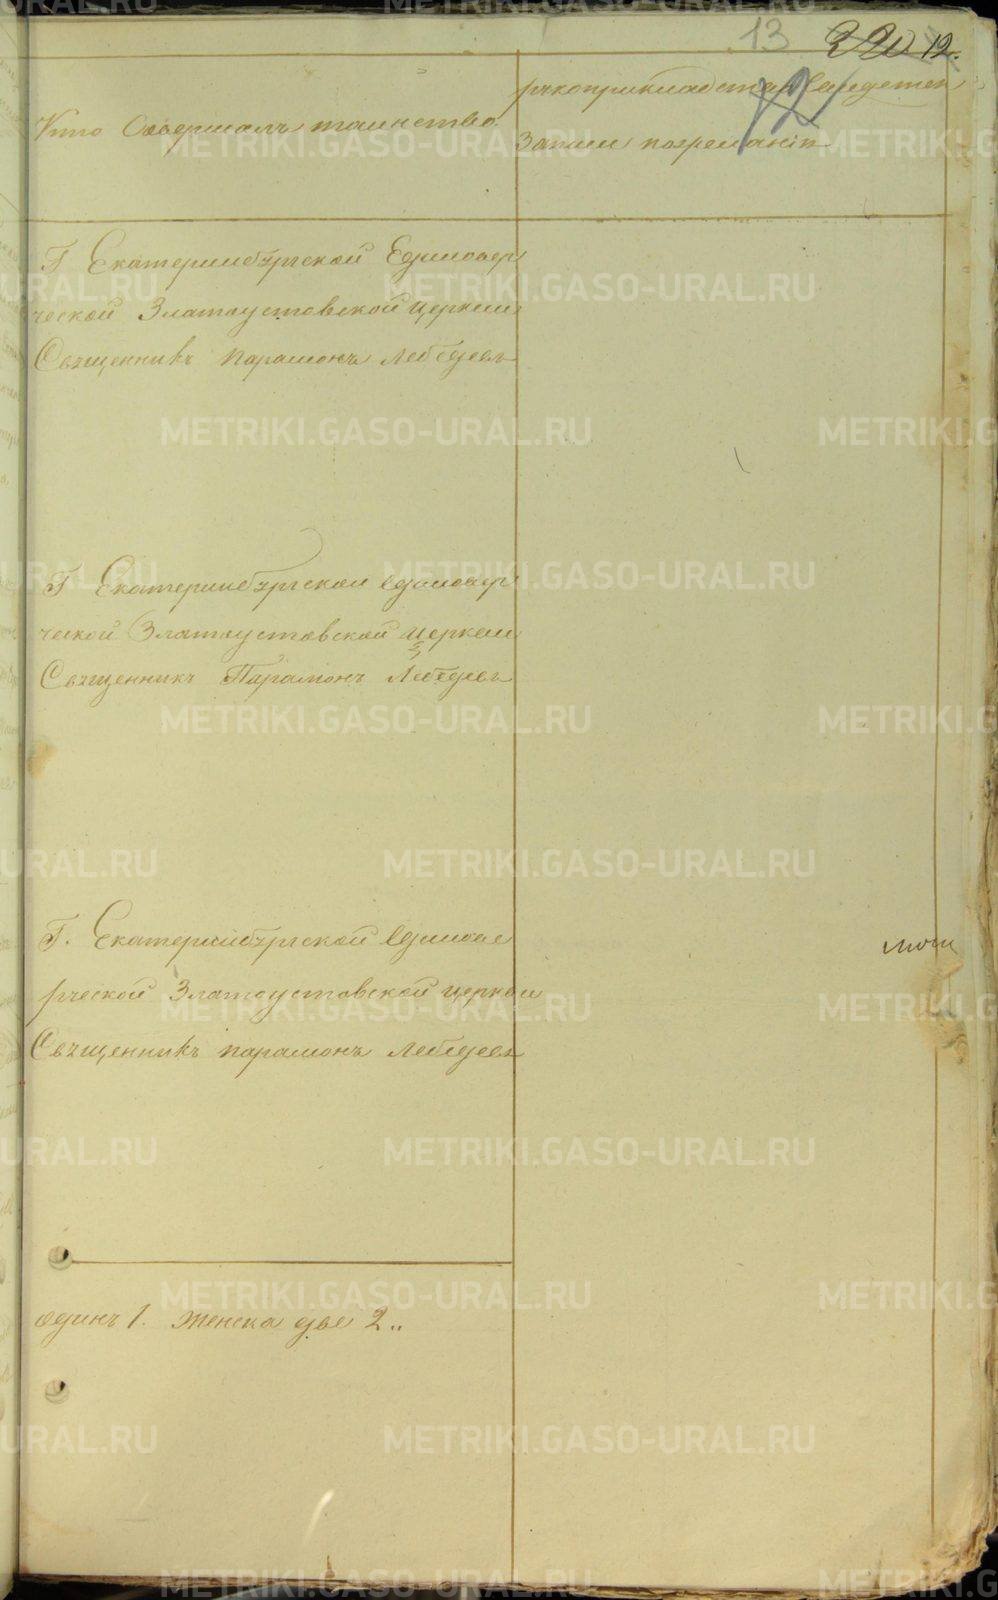 13 12.
Кто Совершалъ таинство.
рукоприкладства Свидетел
Записи по желанiю
Г Екатеринбургской Единовер
ческой Златоустовской церкви
Священникъ парамонъ Лебедевъ
Г Екатеринбургской единовер
ческой Златоустовской церкви
Священникъ Парамонъ Лебедевъ
Г. Екатеринбургской единове
рческой Златоустовской церкви
Священникъ парамонъ Лебедевъ
одинъ 1. женска две 2..
METRIKI.GASO-URAL.RU